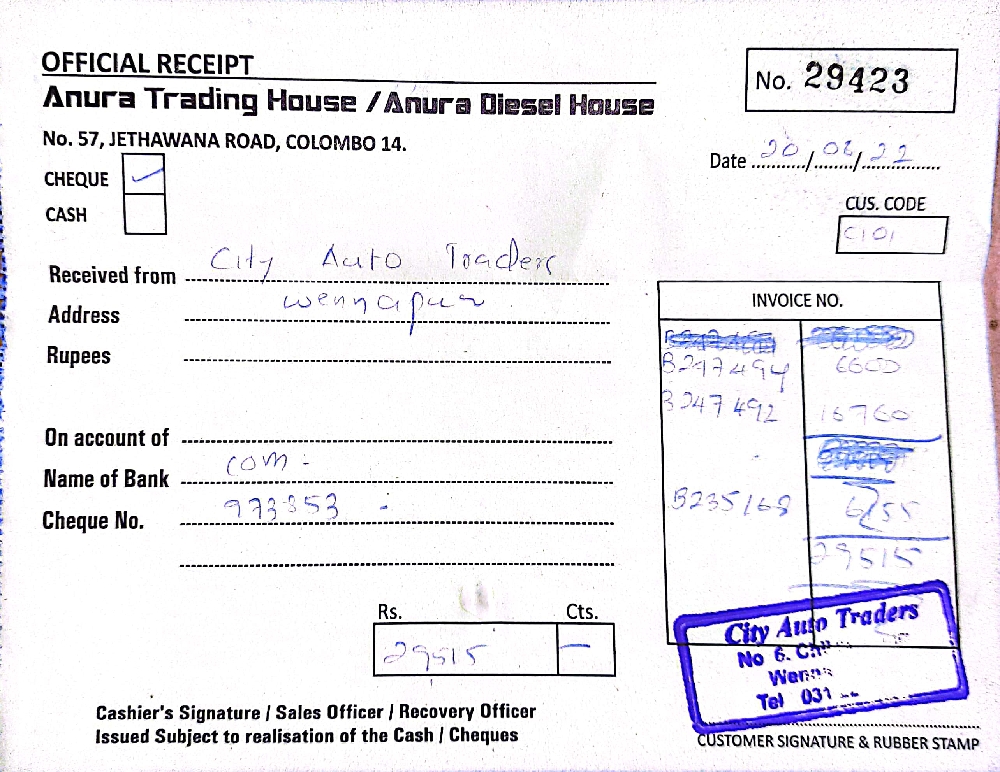 OFFICIAL RECEIPT
Anura Trading House / Anura Diesel House
No. 57, JETHAWANA ROAD, COLOMBO 14.
No. 29423
Date 20/02/22
CHEQUE ✓
CASH
CUS. CODE
C101
Received from City Auto Traders
Address
Rupees
On account of
Name of Bank com:
Cheque No. 973353
INVOICE NO.
B247494 6600
B247492 16760
B235168 6155
29515
Rs. Cts.
29515 –
City Auto Traders
No 6.
Tel 031
Cashier's Signature / Sales Officer / Recovery Officer
Issued Subject to realisation of the Cash / Cheques
CUSTOMER SIGNATURE & RUBBER STAMP